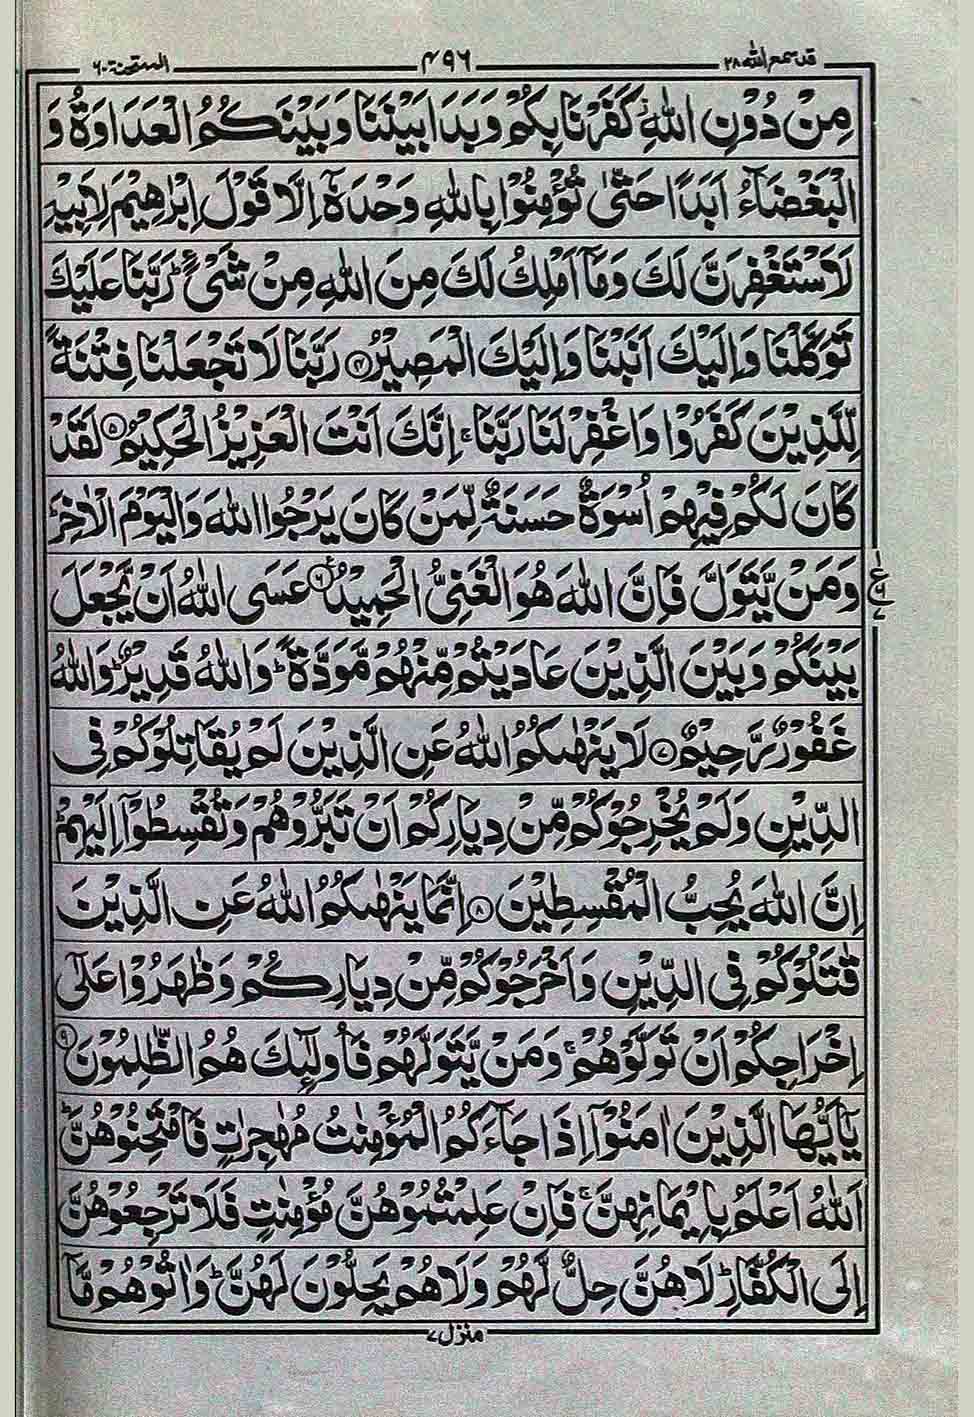 قد سمع الله ٢٨
٤٩٦
الممتحنة ٦٠
مِنْ دُوْنِ اللّٰهِ ۫ كَفَرْنَا بِكُمْ وَبَدَا بَيْنَنَا وَبَيْنَكُمُ الْعَدَاوَةُ وَ
الْبَغْضَآءُ اَبَدًا حَتّٰى تُؤْمِنُوْا بِاللّٰهِ وَحْدَهٗۤ اِلَّا قَوْلَ اِبْرٰهِيْمَ لِاَبِيْهِ
لَاَسْتَغْفِرَنَّ لَكَ وَمَاۤ اَمْلِكُ لَكَ مِنَ اللّٰهِ مِنْ شَىْءٍ ؕ رَبَّنَا عَلَيْكَ
تَوَكَّلْنَا وَاِلَيْكَ اَنَبْنَا وَاِلَيْكَ الْمَصِيْرُ ۝۴ رَبَّنَا لَا تَجْعَلْنَا فِتْنَةً
لِّلَّذِيْنَ كَفَرُوْا وَاغْفِرْ لَنَا رَبَّنَا ۚ اِنَّكَ اَنْتَ الْعَزِيْزُ الْحَكِيْمُ ۝۵ لَقَدْ
كَانَ لَكُمْ فِيْهِمْ اُسْوَةٌ حَسَنَةٌ لِّمَنْ كَانَ يَرْجُوا اللّٰهَ وَالْيَوْمَ الْاٰخِرَ ؕ
وَمَنْ يَّتَوَلَّ فَاِنَّ اللّٰهَ هُوَ الْغَنِىُّ الْحَمِيْدُ ۝۶ عَسَى اللّٰهُ اَنْ يَّجْعَلَ
بَيْنَكُمْ وَبَيْنَ الَّذِيْنَ عَادَيْتُمْ مِّنْهُمْ مَّوَدَّةً ؕ وَاللّٰهُ قَدِيْرٌ ؕ وَاللّٰهُ
غَفُوْرٌ رَّحِيْمٌ ۝۷ لَا يَنْهٰىكُمُ اللّٰهُ عَنِ الَّذِيْنَ لَمْ يُقَاتِلُوْكُمْ فِى
الدِّيْنِ وَلَمْ يُخْرِجُوْكُمْ مِّنْ دِيَارِكُمْ اَنْ تَبَرُّوْهُمْ وَتُقْسِطُوْۤا اِلَيْهِمْ ؕ
اِنَّ اللّٰهَ يُحِبُّ الْمُقْسِطِيْنَ ۝۸ اِنَّمَا يَنْهٰىكُمُ اللّٰهُ عَنِ الَّذِيْنَ
قٰتَلُوْكُمْ فِى الدِّيْنِ وَاَخْرَجُوْكُمْ مِّنْ دِيَارِكُمْ وَظٰهَرُوْا عَلٰۤى
اِخْرَاجِكُمْ اَنْ تَوَلَّوْهُمْ ۚ وَمَنْ يَّتَوَلَّهُمْ فَاُولٰٓئِكَ هُمُ الظّٰلِمُوْنَ ۝۹
يٰۤاَيُّهَا الَّذِيْنَ اٰمَنُوْۤا اِذَا جَآءَكُمُ الْمُؤْمِنٰتُ مُهٰجِرٰتٍ فَامْتَحِنُوْهُنَّ ؕ
اَللّٰهُ اَعْلَمُ بِاِيْمَانِهِنَّ ۚ فَاِنْ عَلِمْتُمُوْهُنَّ مُؤْمِنٰتٍ فَلَا تَرْجِعُوْهُنَّ
اِلَى الْكُفَّارِ ؕ لَا هُنَّ حِلٌّ لَّهُمْ وَلَا هُمْ يَحِلُّوْنَ لَهُنَّ ؕ وَاٰتُوْهُمْ مَّاۤ
منزل ٧